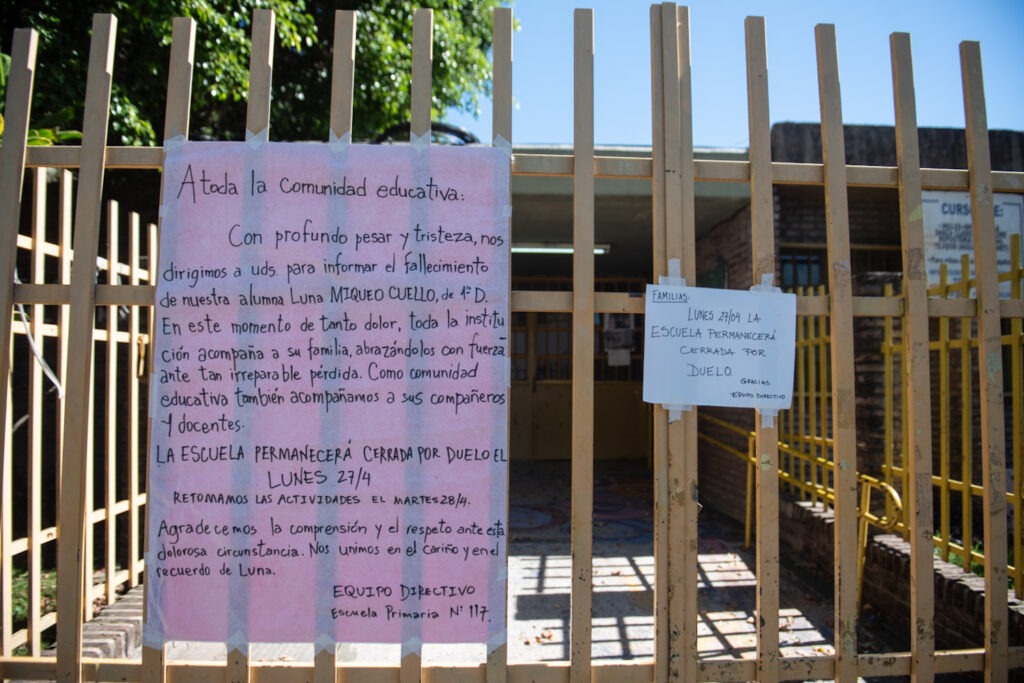 A toda la comunidad educativa:
Con profundo pesar y tristeza, nos
dirigimos a uds. para informar el fallecimiento
de nuestra alumna Luna MIQUEO CUELLO, de 1° D.
En este momento de tanto dolor, toda la institu
ción acompaña a su familia, abrazándolos con fuerza
ante tan irreparable pérdida. Como comunidad
educativa también acompañamos a sus compañeros
y docentes.
LA ESCUELA PERMANECERÁ CERRADA POR DUELO EL
LUNES 27/4
RETOMAMOS LAS ACTIVIDADES EL MARTES 28/4.
Agradecemos la comprensión y el respeto ante esta
dolorosa circunstancia. Nos unimos en el cariño y en el
recuerdo de Luna.
EQUIPO DIRECTIVO
Escuela Primaria N° 117.
FAMILIAS:
LUNES 27/04 LA
ESCUELA PERMANECERÁ
CERRADA POR
DUELO.
GRACIAS
EQUIPO DIRECTIVO